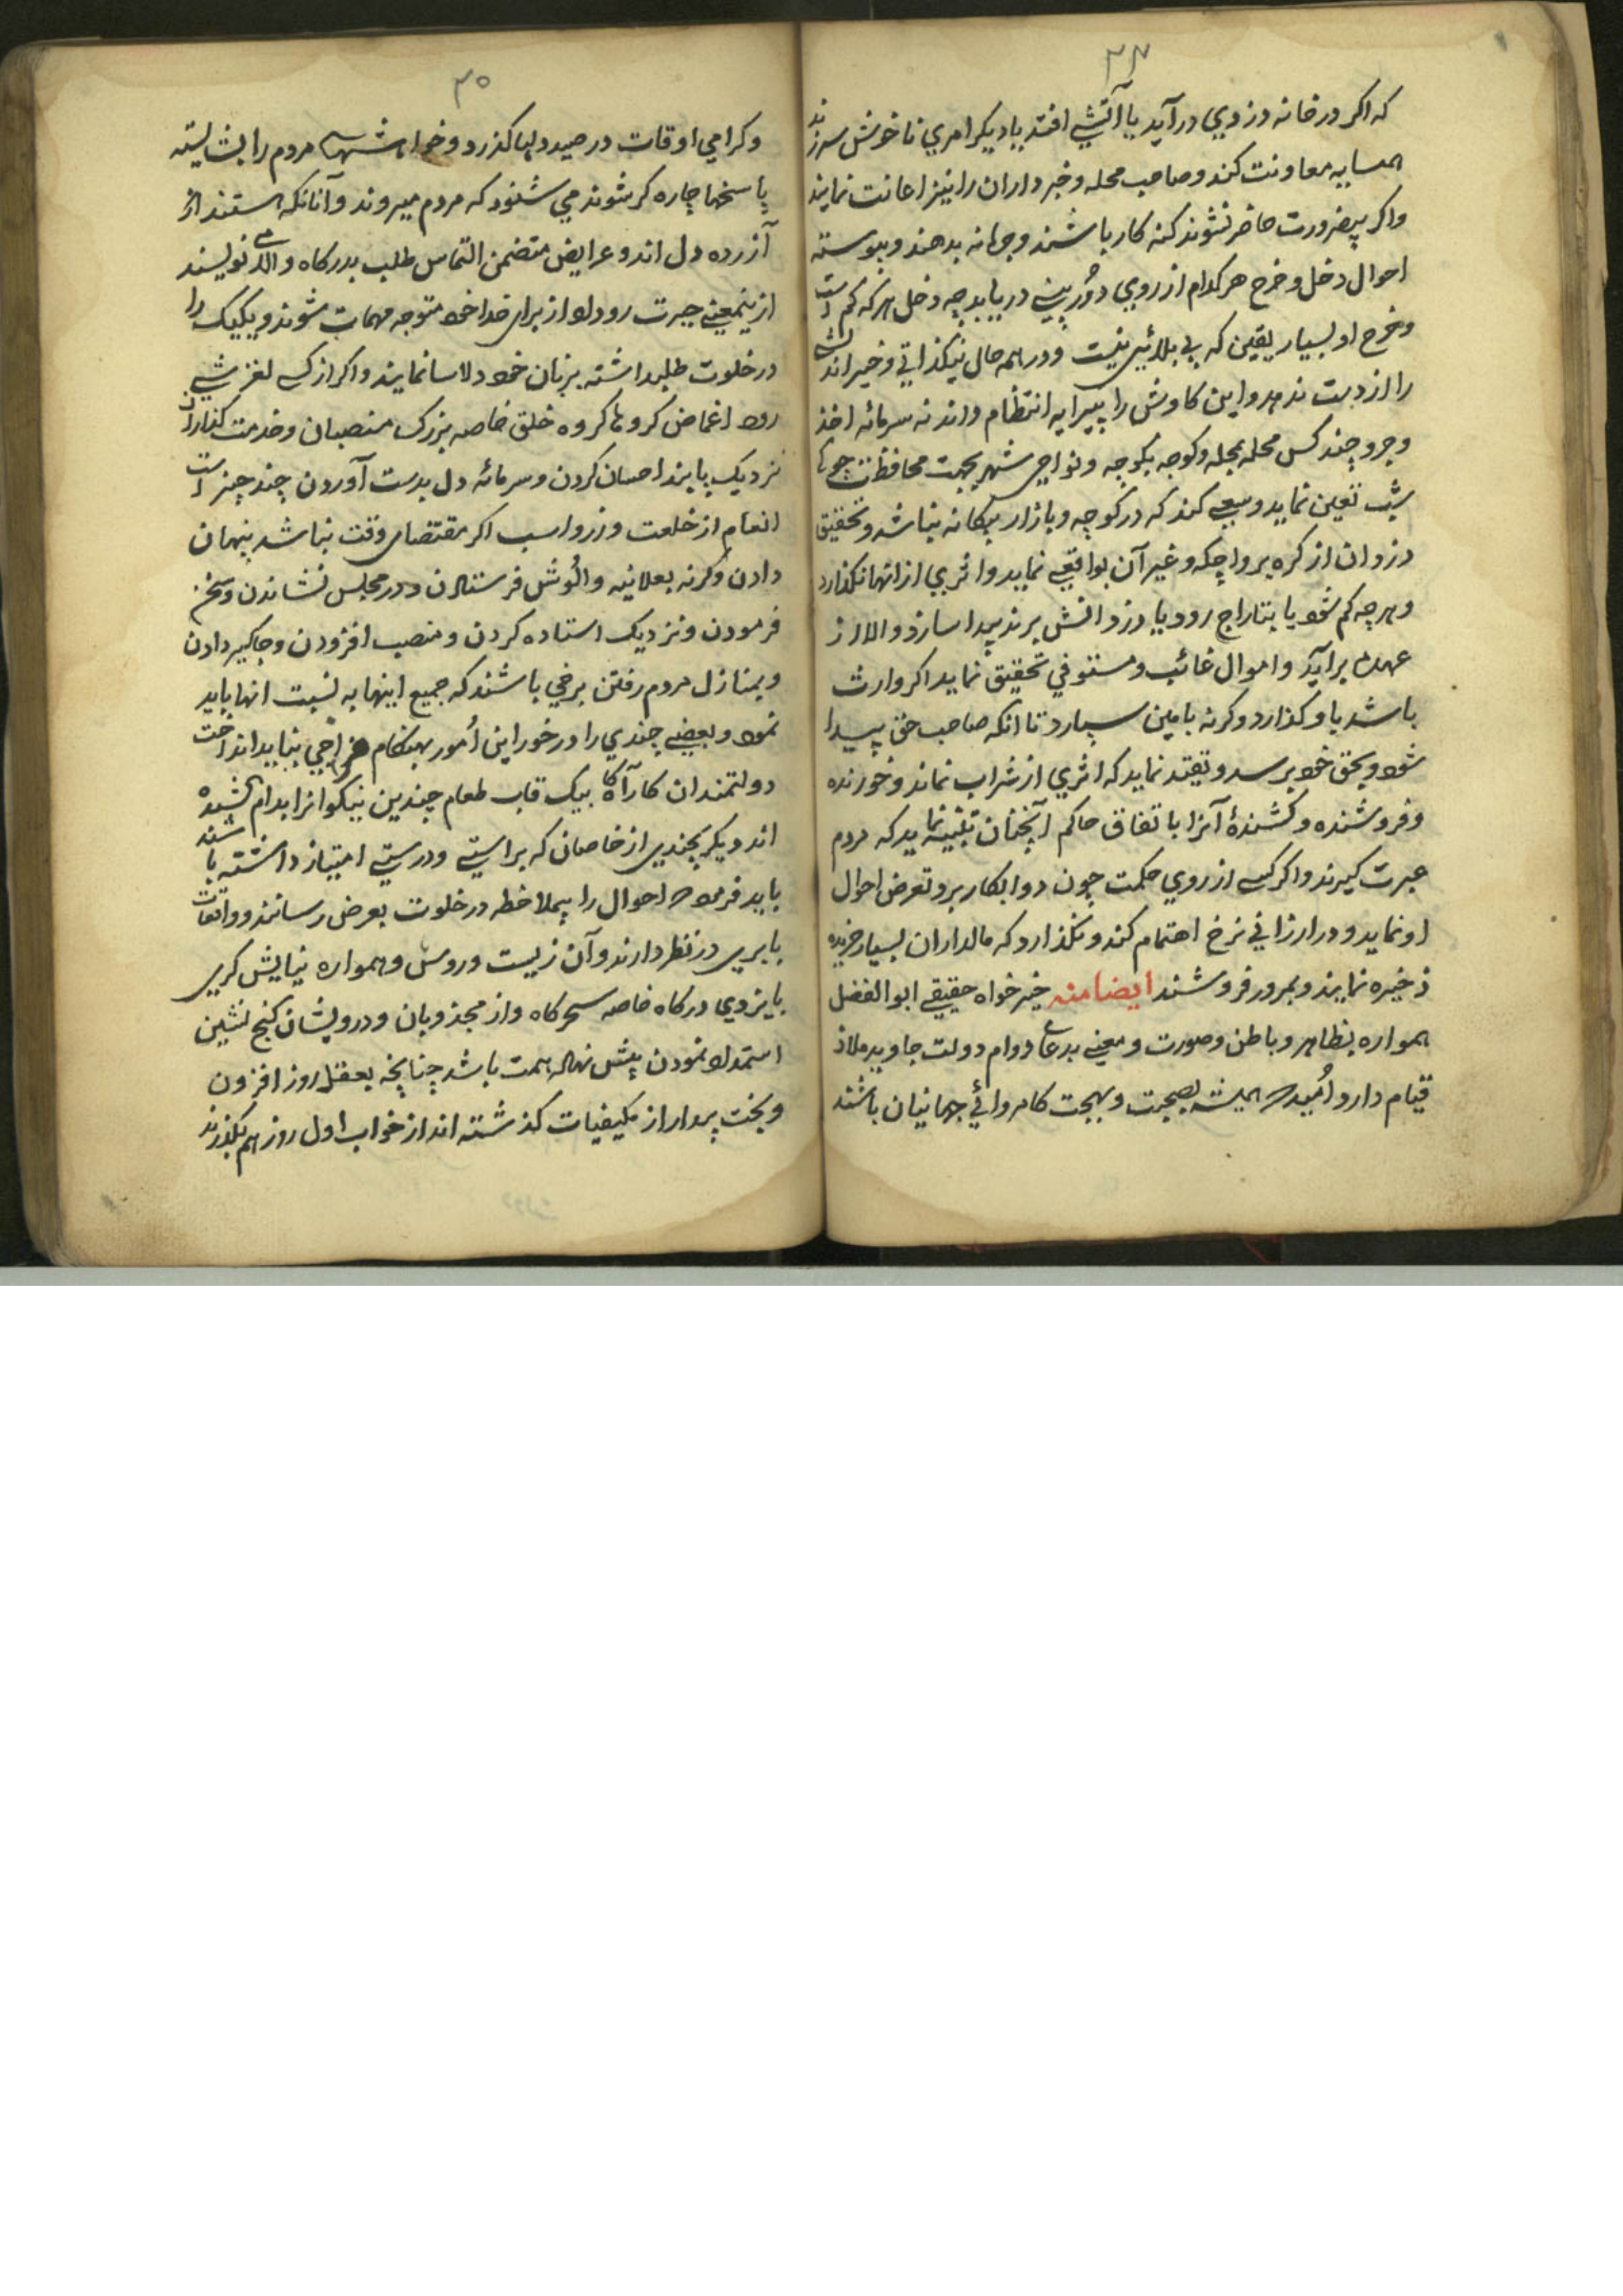 ۳۴
که اکر در خانه دزدي در آید یا آتشي افتد یا دیکر امري ناخوش سر زند
همسایه معاونت کند و صاحب محله و خبرداران را نیز اعانت نمایند
واکر بیضرورت حاضر نشوند کنه کار باشند و جرمانه بدهند و پیوسته
احوال دخل و خرج هر کدام از روي دوربیني دریابد چه دخل هر که کم است
و خرج او بسیار یقین که بي بلائي نیست و در همه حال نیکذاتي و خیراندیشي
را از دست ندهد و این کاوش را پیرایه انتظام داند نه سرمائه اخذ
و جر و چند کس محله بمحله و کوچه بکوچه و نواحي شهر بجهت محافظت
شب تعین نماید و سعي کند که در کوچه و بازار بیکانه نباشد و تحقیق
دزدان از کره بر و اچکه و غیر آن بواقعي نماید و اثري از انها نکذارد
و هر چه کم شود یا بتاراج رود یا دزد انش برند پیدا سازد و الا از
عهده برآید و اموال غائب و متوفي تحقیق نماید اکر وارث
باشد باو کذارد وکرنه بامین سپارد تا انکه صاحب حق پیدا
شود و بحق خود برسد و تقید نماید که اثري از شراب نماند و خورنده
و فروشنده و کشندهٔ آنرا باتفاق حاکم آنچنان تنبیه نماید که مردم
عبرت کیرند و اکر کسي از روي حکمت چون دوا بکار برد تعرض احوال
او نماید و در ارزاني نرخ اهتمام کند و نکذارد که مالداران بسیار خریده
ذخیره نمایند و بمرور فروشند ایضا منه خیرخواه حقیقي ابوالفضل
همواره بظاهر و باطن و صورت و معني بدعاي دوام دولت جاوید ملاذ
قیام دارد اُمید که همیشه بصحت و بهجت کامروائي جهانیان باشند
۳۵
و کرامي اوقات در صید دلها کذرد و خواهشهای مردم را بشایسته
پاسخها چاره کر شوند مي شنود که مردم میروند و آنانکه هستند از
آزرده دل اند و عرایض متضمن التماس طلب بدرکاه والا مي نویسند
ازینمعني حیرت رو داد از برای خدا خود متوجه مهمات شوند و یکیک را
در خلوت طلبداشته بزبان خود دلاسا نمایند و اکر از کسي لغزشي
رود اغماض کرده خلق خاصه بزرک منصبان و خدمت کذاران
نزدیک پابند احسان کردن و سرمائه دل بدست آوردن چند چیز است
انعام از خلعت و زر و اسب اکر مقتضای وقت نباشد پنهان
دادن وکرنه بعلانیه و الُوش فرستادن و در مجلس نشاندن و سخن
فرمودن و نزدیک استاده کردن و منصب افزودن و جاکیر دادن
و بمنازل مردم رفتن برخي باشند که جمیع اینها به نسبت انها باید
نمود و بعضي چندي را در خور این اُمور بهنکام نباید انداخت
دولتمندان کارآکاه بیک قاب طعام چندین نیکوانرا بدام کشیده
اند دیکر چندی از خاصان که براستي و درستي امتیاز داشته باشند
باید فرمود که احوال را بیملاحظه در خلوت بعرض رسانند و واقعات
بابری در نظر دارند و آن زیست و روش و همواره نیایش کری
بایزدي درکاه خاصه سحرکاه و از مجذوبان و درویشان کنج نشین
استمداد نمودن پیش نهاد همت باشد چنانچه بعقل روز افزون
و بخت بیدار از مکیفیات کذشته اند از خواب اول روز هم بکذرند